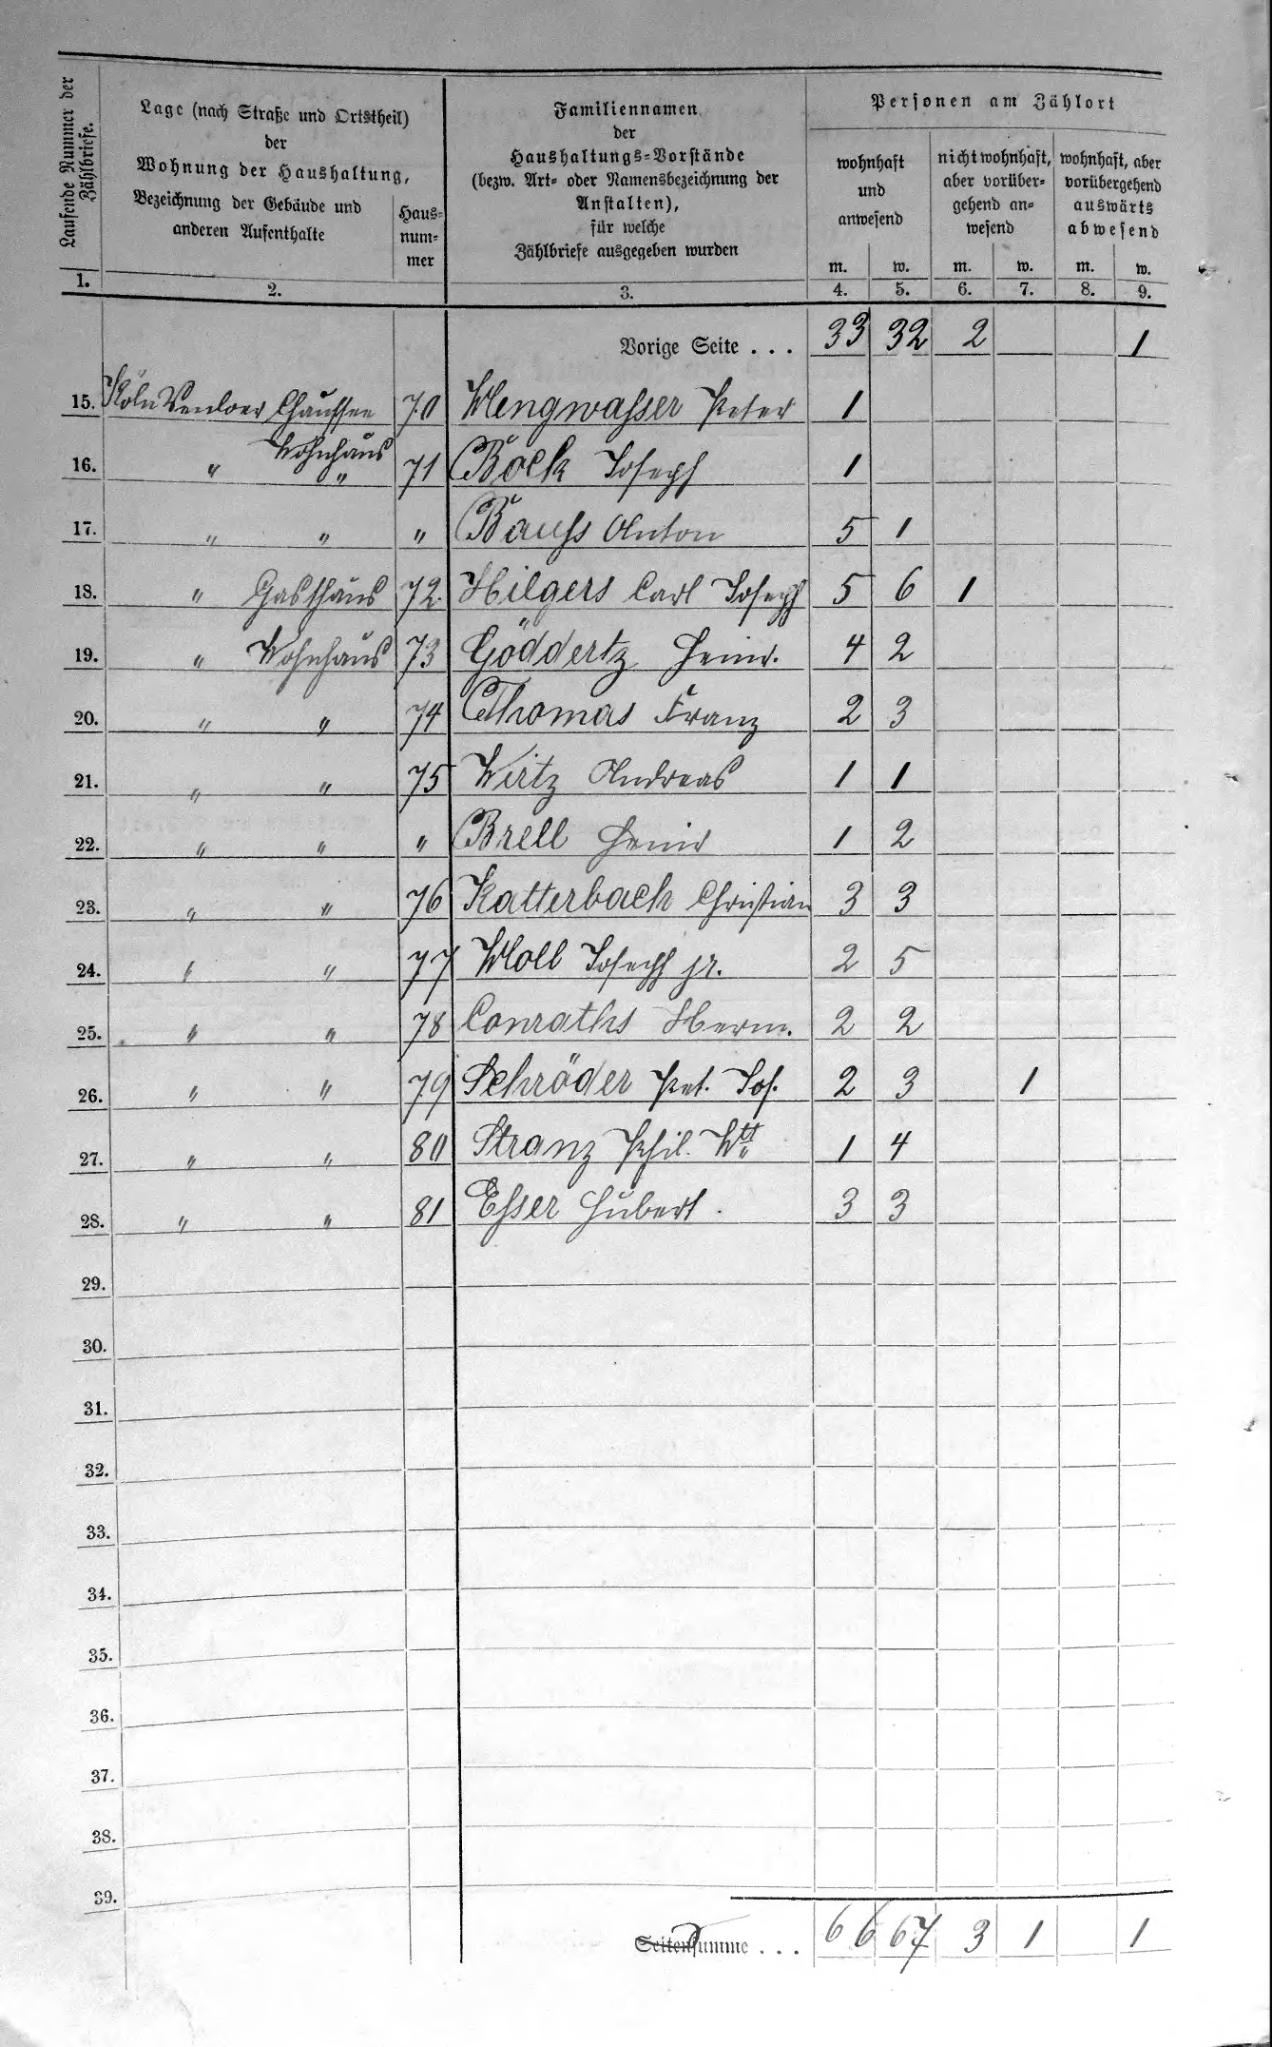 Laufende Nummer der Zählbriefe.
Lage (nach Straße und Ortstheil)
der
Wohnung der Haushaltung,
Bezeichnung der Gebäude und
anderen Aufenthalte
Haus-
num-
mer
Familiennamen
der
Haushaltungs-Vorstände
(bezw. Art- oder Namensbezeichnung der
Anstalten),
für welche
Zählbriefe ausgegeben wurden
Personen am Zählort
wohnhaft
und
anwesend
nicht wohnhaft,
aber vorüber-
gehend an-
wesend
wohnhaft, aber
vorübergehend
auswärts
abwesend
m. w. m. w. m. w.
1. 2. 3. 4. 5. 6. 7. 8. 9.
Vorige Seite . . . 33 32 2 1
15. Köln Venloer Chaussee 70 Mengwasser Peter 1
Wohnhaus
16. " " 71 Bock Joseph 1
17. " " " Bauss Anton 5 1
18. " Gasthaus 72. Hilgers Carl Joseph 5 6 1
19. " Wohnhaus 73 Göddertz Heinr. 4 2
20. " " 74 Thomas Franz 2 3
21. " " 75 Wirtz Andreas 1 1
22. " " " Brell Heinr 1 2
23. " " 76 Katterbach Christian 3 3
24. " " 77 Moll Joseph jr. 2 5
25. " " 78 Conraths Herm. 2 2
26. " " 79 Schröder Pet. Jos. 2 3 1
27. " " 80 Stranz Phil. Wtt 1 4
28. " " 81 Esser Hubert. 3 3
29.
30.
31.
32.
33.
34.
35.
36.
37.
38.
39.
Seitensumme . . . 66 67 3 1 1